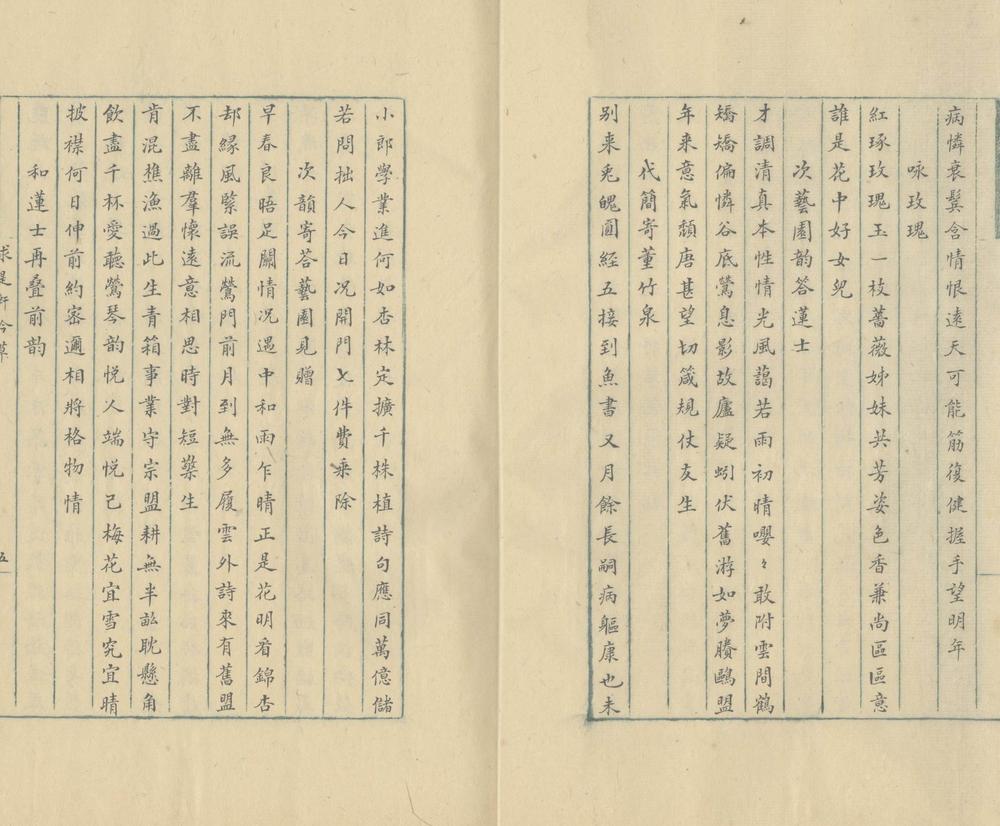 病憐衰鬂含情恨遠天可能筋復健握手望明年
咏玫瑰
紅琢玫瑰玉一枝薔薇姊妹共芳姿色香兼尚區區意
誰是花中好女兒
次藝園韵答蓮士
才調清真本性情光風藹若雨初晴嚶〻敢附雲間鶴
矯矯偏憐谷底鶯息影故廬疑蚓伏舊游如夢賸鷗盟
年来意氣頹唐甚望切箴規仗友生
代簡寄董竹泉
别来兎魄圓經五接到魚書又月餘長嗣病軀康也未
小郎學業進何如杏林定擴千株植詩句應同萬億儲
若問拙人今日况開門七件費乘除
次韻寄荅藝園見贈
早春良晤足關情况遇中和雨乍晴正是花明看錦杏
却緣風緊誤流鶯門前月到無多履雲外詩來有舊盟
不盡離羣懷遠意相思時對短檠生
肯混樵漁過此生青箱事業守宗盟耕無半畝耽懸角
飲盡千杯愛聽鶯琴韵悦人端悦己梅花宜雪究宜晴
披襟何日伸前約密邇相將格物情
和蓮士再叠前韵
求是軒今草
五